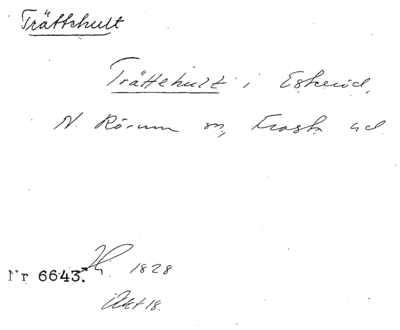 Trättehult
Trättehult i Eskeröd,
N. Rörum sn, Frosta hd
Nr 6643. 1828
Akt 18.